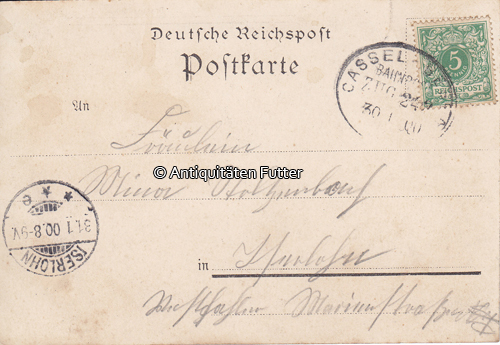 Deutsche Reichspost
Postkarte
An
Fräulein
© Antiquitäten Futter
Minna
in Iserlohn
Westfahlen Marienstraße
5
REICHSPOST
CASSEL
BAHNPOST
ZUG
30 1 00
31.1 00. 8-9V.
ISERLOHN